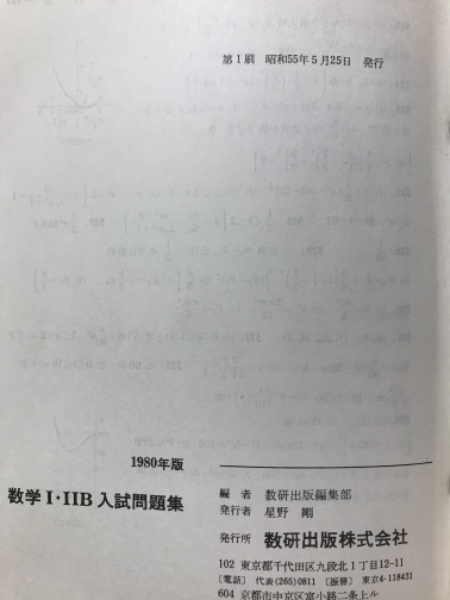 第1刷 昭和55年5月25日 発行
1980年版
数学I・IIB入試問題集
編者 数研出版編集部
発行者 星野 剛
発行所 数研出版株式会社
102 東京都千代田区九段北1丁目12-11
〔電話〕代表(265)0811〔振替〕東京4-118431
604 京都市中京区富小路二条上ル